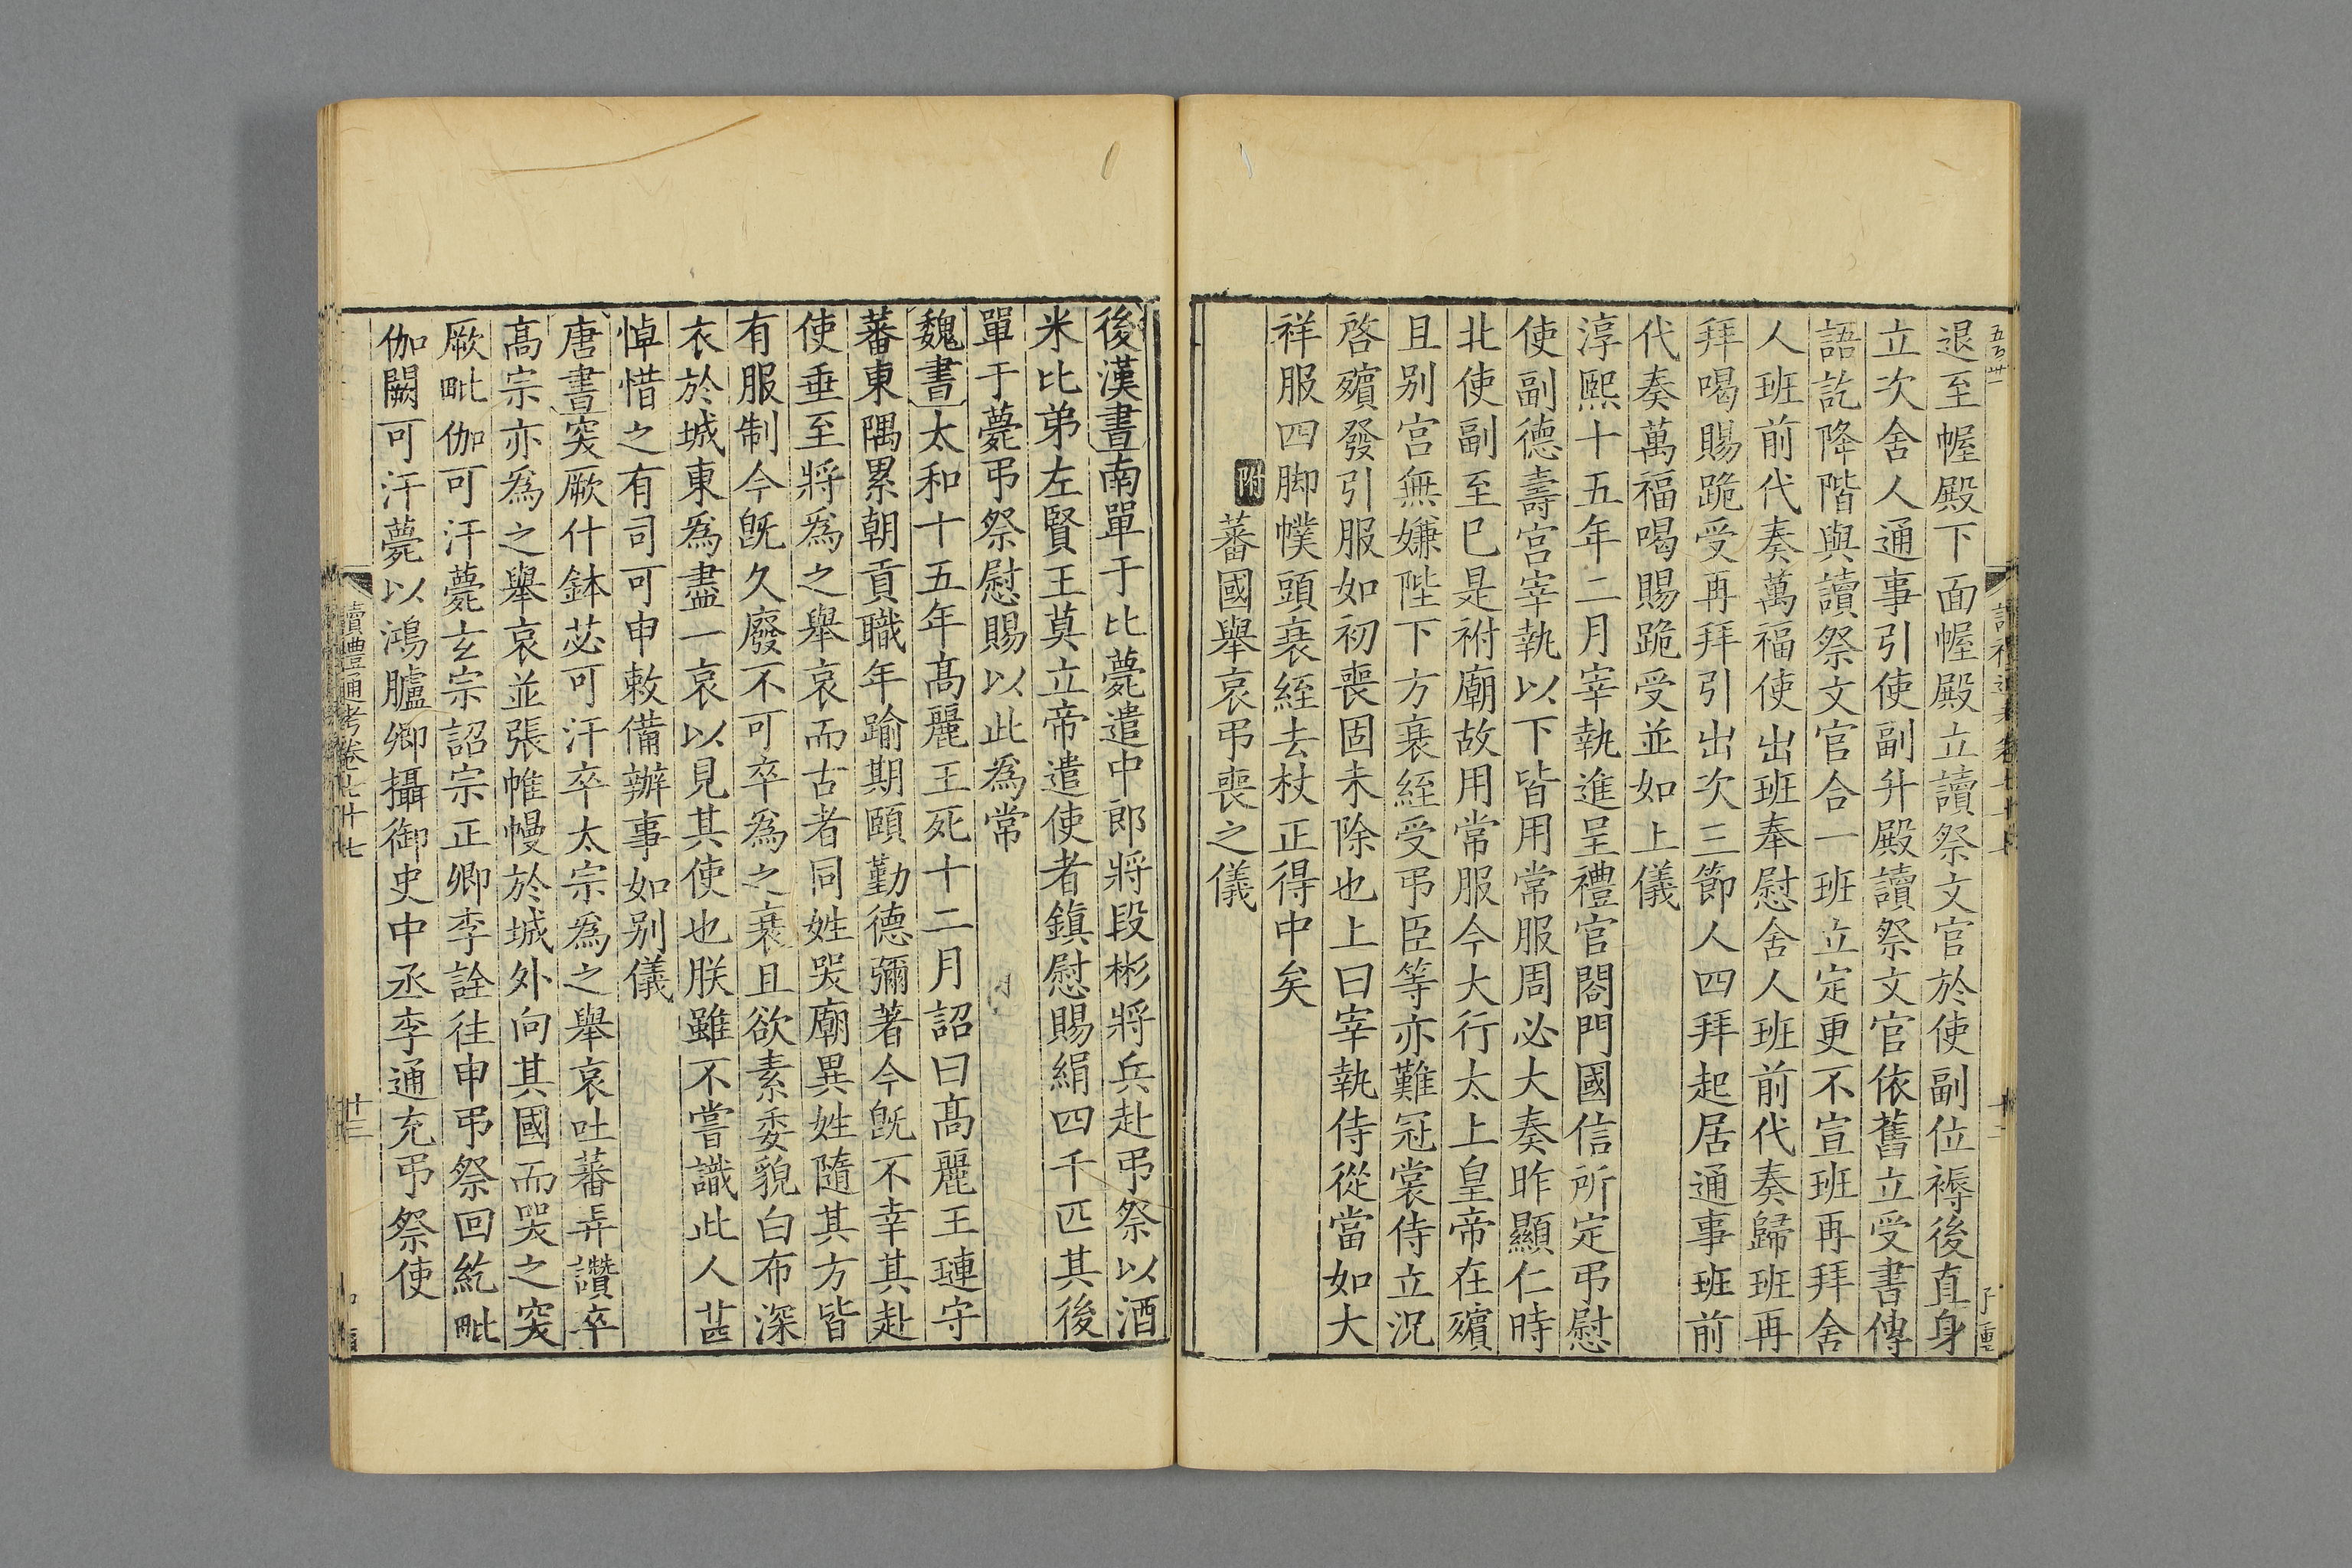 退至幄殿下面幄殿立讀祭文官於使副位褥後直身
立次舍人通事引使副升殿讀祭文官依舊立受書傳
語訖降階與讀祭文官合一班立定更不宣班再拜舍
人班前代奏萬福使出班奉慰舍人班前代奏歸班再
拜喝賜跪受再拜引出次三節人四拜起居通事班前
代奏萬福喝賜跪受並如上儀
淳熙十五年二月宰執進呈禮官閤門國信所定弔慰
使副德壽宮宰執以下皆用常服周必大奏昨顯仁時
北使副至已是祔廟故用常服今大行太上皇帝在殯
且別宮無嫌陛下方衰絰受弔臣等亦難冠裳侍立況
啓殯發引服如初喪固未除也上曰宰執侍從當如大
祥服四脚幞頭衰絰去杖正得中矣
附蕃國舉哀弔喪之儀
後漢書南單于比薨遣中郎將段彬將兵赴弔祭以酒
米比弟左賢王莫立帝遣使者鎮慰賜絹四千匹其後
單于薨弔祭慰賜以此爲常
魏書太和十五年髙麗王死十二月詔曰髙麗王璉守
蕃東隅累朝貢職年踰期頤勤德彌著今旣不幸其赴
使垂至將爲之舉哀而古者同姓哭廟異姓隨其方皆
有服制今旣久廢不可卒爲之衰且欲素委貌白布深
衣於城東爲盡一哀以見其使也朕雖不嘗識此人甚
悼惜之有司可申敕備辦事如別儀
唐書突厥什鉢苾可汗卒太宗爲之舉哀吐蕃弄讚卒
髙宗亦爲之舉哀並張帷幔於城外向其國而哭之突
厥毗伽可汗薨玄宗詔宗正卿李詮往申弔祭回紇毗
伽闕可汗薨以鴻臚卿攝御史中丞李通充弔祭使
讀禮通考卷七十七
十三